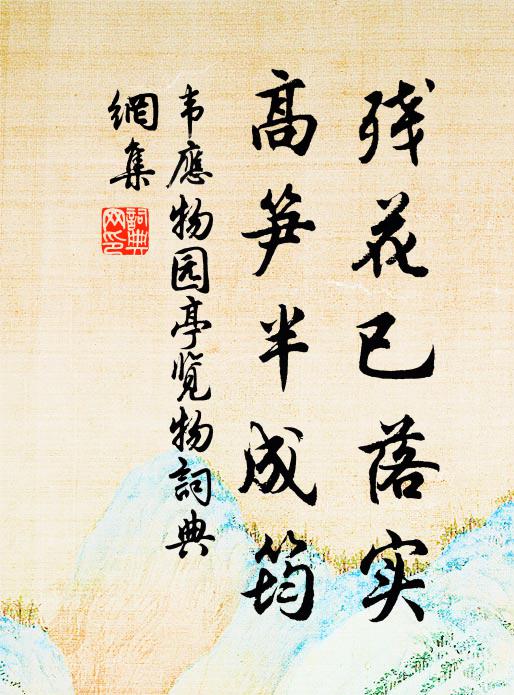 残花已落实
高笋半成筠
韦應物园亭览物詞典
網集
詞典
网印